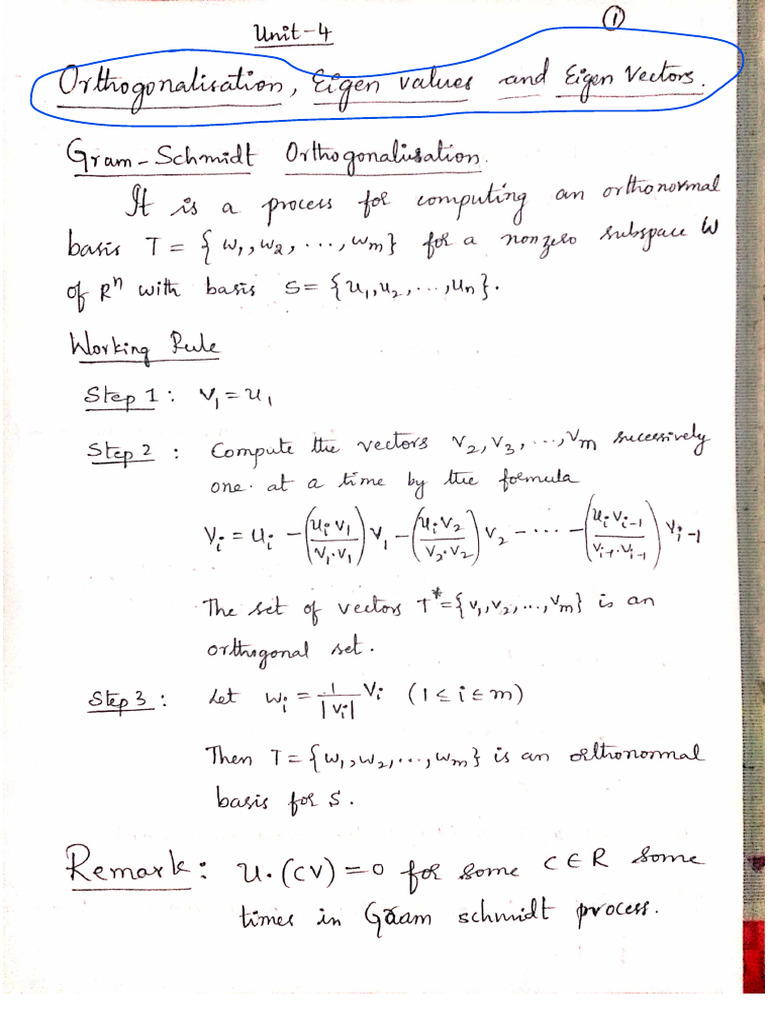 ①
Unit-4
Orthogonalisation, Eigen values and Eigen Vectors.
Gram-Schmidt Orthogonalisation.
It is a process for computing an orthonormal
basis T = {w₁, w₂, ..., wm} for a nonzero subspace W
of Rⁿ with basis S = {u₁, u₂, ..., un}.
Working Rule
Step 1 : V₁ = u₁
Step 2 : Compute the vectors V₂, V₃, ..., Vm sucessively
one at a time by the formula
Vᵢ = uᵢ - (uᵢ V₁ / V₁.V₁) V₁ - (uᵢ V₂ / V₂.V₂) V₂ - ... - (uᵢ Vᵢ₋₁ / Vᵢ₋₁.Vᵢ₋₁) Vᵢ₋₁
The set of vectors T* = {V₁, V₂, ..., Vm} is an
orthogonal set.
Step 3 : Let wᵢ = 1/|Vᵢ| Vᵢ (1 ≤ i ∈ m)
Then T = {w₁, w₂, ..., wm} is an orthonormal
basis for S.
Remark: u.(cv) = 0 for some C ∈ R some
times in Gram schmidt process.